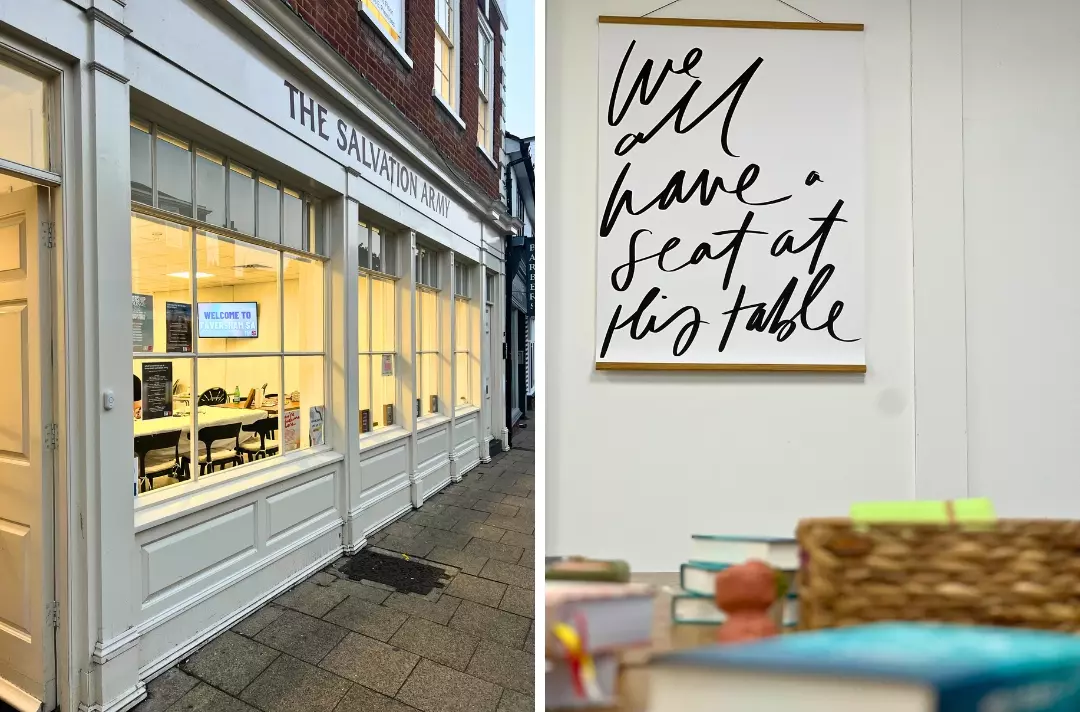 THE SALVATION ARMY
WELCOME TO
FAVERSHAM SA
BARBERS
We
all
have a
seat at
His table